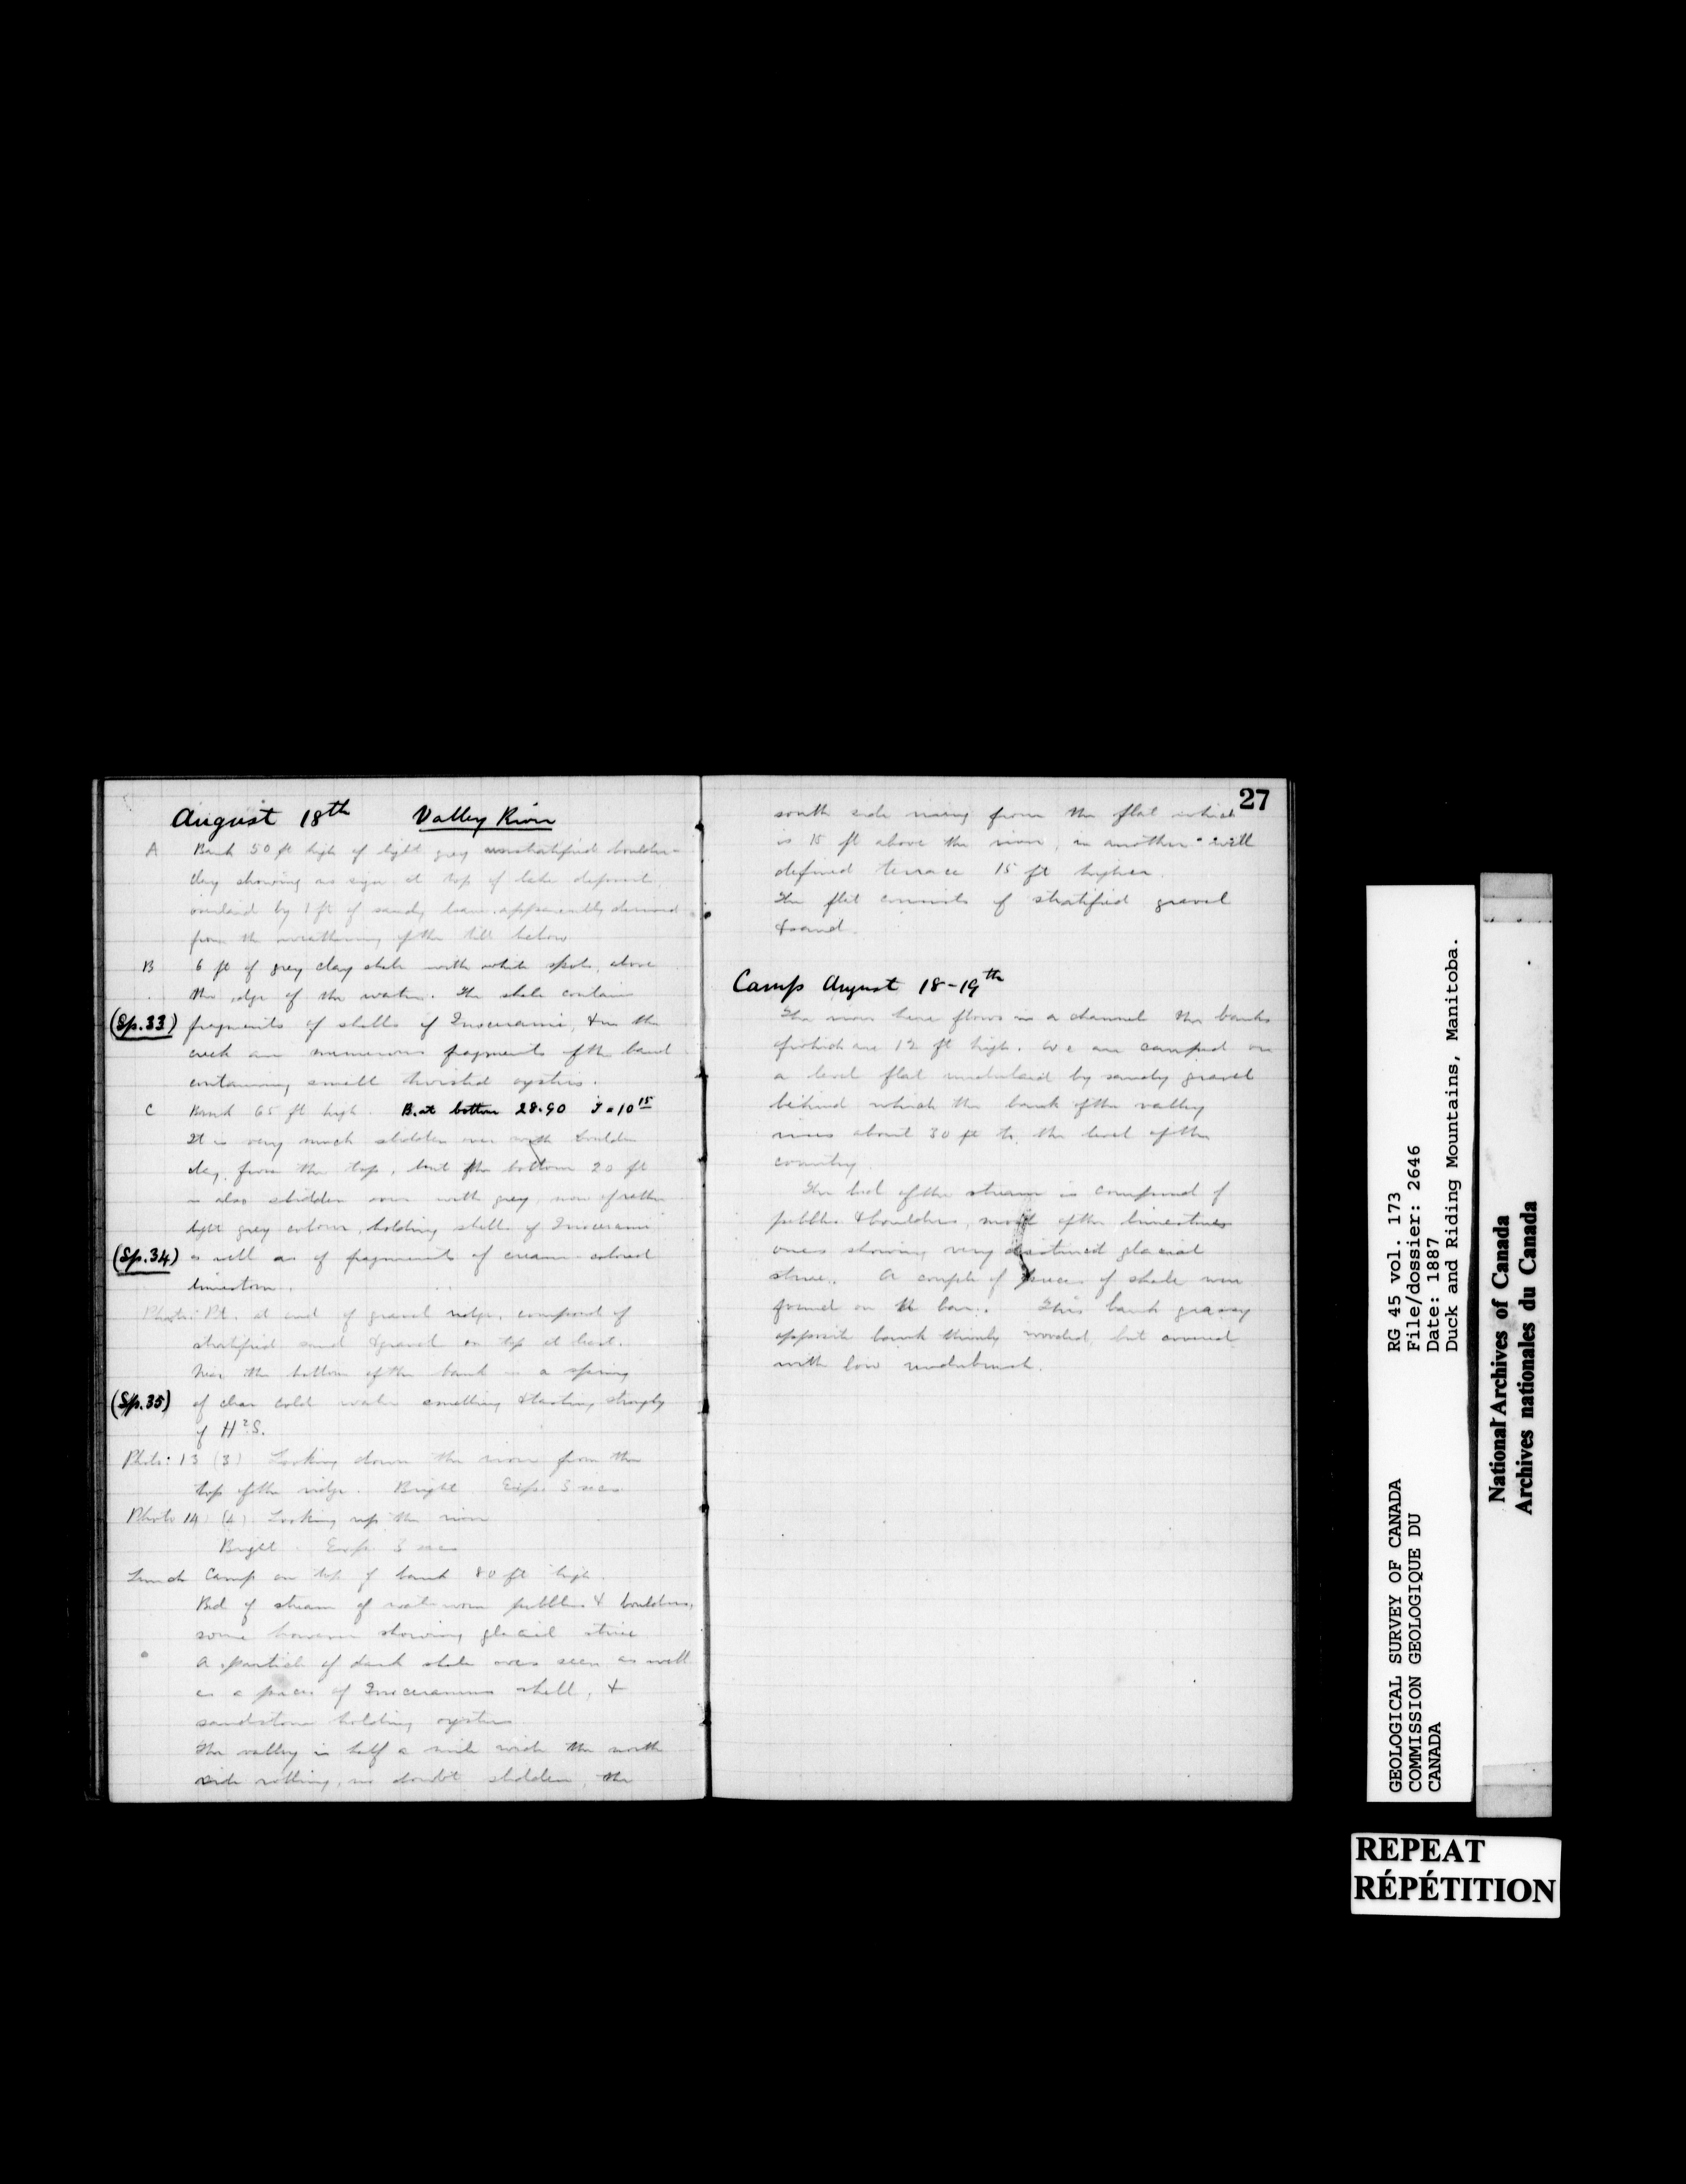 August 18th Valley River
A Bank 50 ft high of light grey unstratified boulder-
clay showing no sign at top of lake deposit,
overlaid by 1 ft of sandy loam apparently derived
from the weathering of the till below
B 6 ft of grey clay shale with white spots, above
the edge of the water. The shale contains
(Sp. 33) fragments of shells of Inocerami, & in the
creek are numerous fragments of the band
containing small twisted oysters.
C Bank 65 ft high. B. at bottom 28.90 T = 10 15
It is very much slidden over with boulder
clay from the top, but the bottom 20 ft
is also slidden over with grey, now of rather
light grey colour, holding shells of Inocerami
(Sp. 34) as well as of fragments of cream-colored
limestone.
Photo: Pt. at end of gravel ridge, composed of
stratified sand & gravel on top at least.
Near the bottom of the bank is a spring
(Sp. 35) of clear cold water smelling & tasting strongly
of H2S.
Photo: 13 (3) Looking down the river from the
top of the ridge. Bright Exp. 3 secs
Photo 14 (4) Looking up the river
Bright. Exp. 3 secs
Lunch Camp on top of bank 80 ft high.
Bed of stream of water worn pebbles & boulders,
some however showing glacial striae
A particle of dark shale was seen as well
as a piece of Inoceramus shell, &
sandstone holding oysters
The valley is half a mile wide the north
side rolling, no doubt slidden, the
27
south side rising from the flat which
is 15 ft above the river, in another well
defined terrace 15 ft higher.
The flat consists of stratified gravel
& sand.
Camp August 18-19th
The river here flows in a channel the banks
of which are 12 ft high. We are camped on
a level flat underlaid by sandy gravel
behind which the bank of the valley
rises about 30 ft to the level of the
country.
The bed of the stream is composed of
pebbles & boulders, most of the limestone
ones showing very distinct glacial
striae. A couple of pieces of shale were
found on the bar. This bank grassy
opposite bank thinly wooded, but covered
with low underbrush.
GEOLOGICAL SURVEY OF CANADA
COMMISSION GEOLOGIQUE DU
CANADA
RG 45 vol. 173
File/dossier: 2646
Date: 1887
Duck and Riding Mountains, Manitoba.
National Archives of Canada
Archives nationales du Canada
REPEAT
RÉPÉTITION